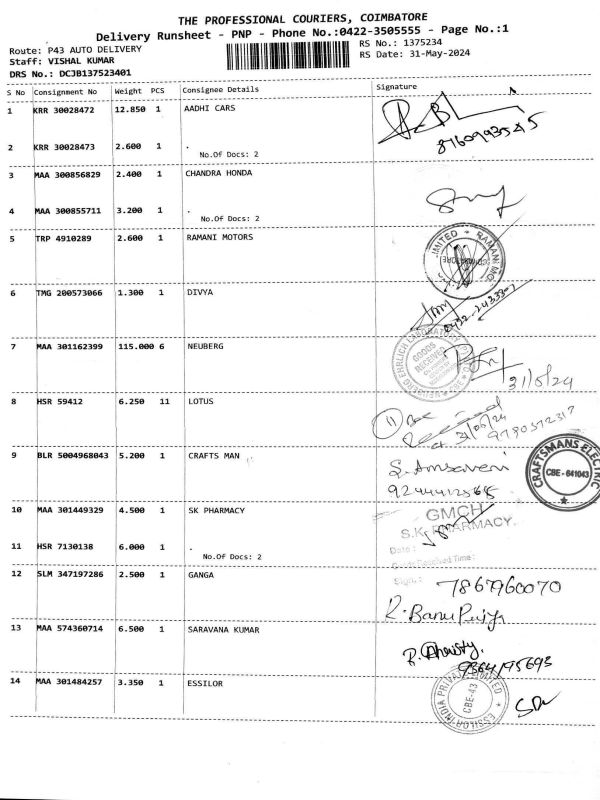 THE PROFESSIONAL COURIERS, COIMBATORE
Delivery Runsheet - PNP - Phone No.:0422-3505555 - Page No.:1
Route: P43 AUTO DELIVERY
RS No.: 1375234
Staff: VISHAL KUMAR
RS Date: 31-May-2024
DRS No.: DCJB137523401
S No Consignment No Weight PCS Consignee Details Signature
1 KRR 30028472 12.850 1 AADHI CARS
2 KRR 30028473 2.600 1 .
No.Of Docs: 2
3 MAA 300856829 2.400 1 CHANDRA HONDA
4 MAA 300855711 3.200 1 .
No.Of Docs: 2
5 TRP 4910289 2.600 1 RAMANI MOTORS
6 TMG 200573066 1.300 1 DIVYA
7 MAA 301162399 115.000 6 NEUBERG
GOODS RECEIVED
31/5/24
8 HSR 59412 6.250 11 LOTUS
11 Box
Received
31/05/24
9 BLR 5004968043 5.200 1 CRAFTS MAN
CRAFTSMANS ELECTRIC
CBE - 641043
10 MAA 301449329 4.500 1 SK PHARMACY
GMCH
S.K. PHARMACY
11 HSR 7130138 6.000 1 .
No.Of Docs: 2
Date :
12 SLM 347197286 2.500 1 GANGA
Sign. :
7867960070
13 MAA 574360714 6.500 1 SARAVANA KUMAR
9364195693
14 MAA 301484257 3.350 1 ESSILOR
ESSILOR INDIA PRIVATE LIMITED
CBE-43